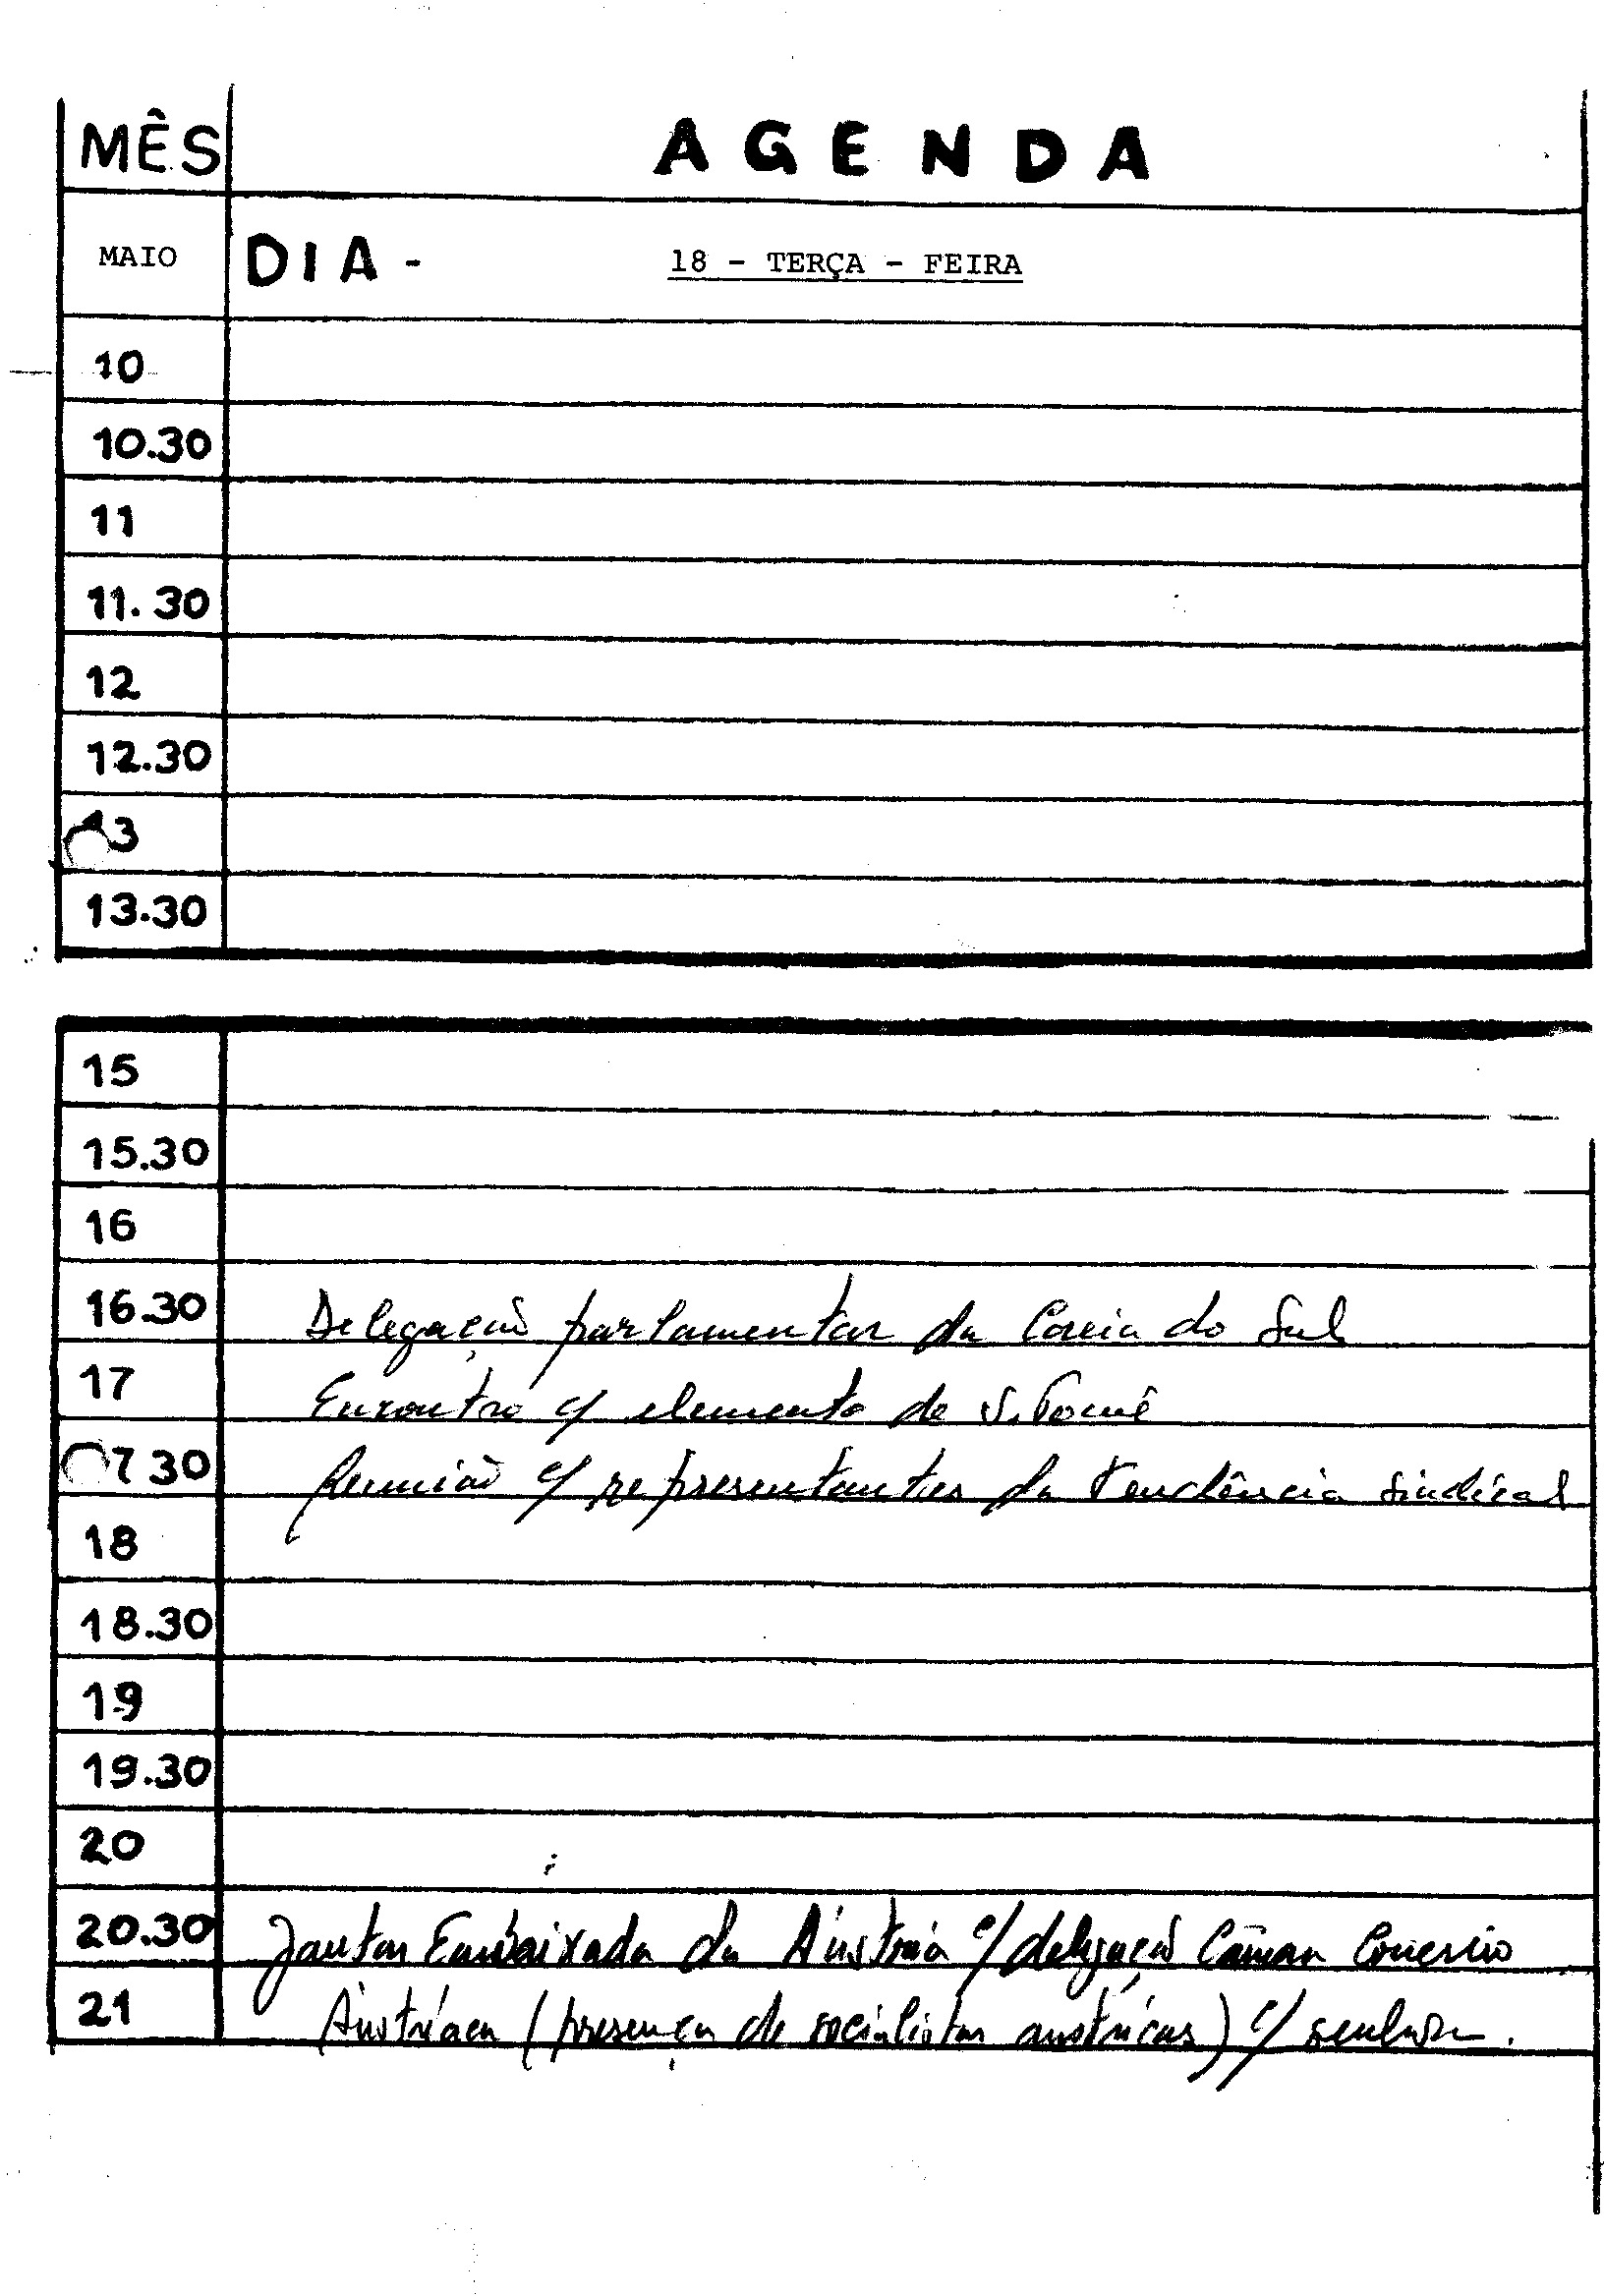 MÊS AGENDA
MAIO DIA - 18 - TERÇA - FEIRA
10
10.30
11
11.30
12
12.30
13
13.30
15
15.30
16
16.30 Delegação parlamentar da Coreia do Sul
17 Encontro c/ elemento de S. Tomé
7.30 Reunião c/ representantes da Tendência Sindical
18
18.30
19
19.30
20
20.30 Jantar Embaixada da Áustria c/ delegação Câmara Comércio
21 Austríaca (presença de socialistas austríacos) c/